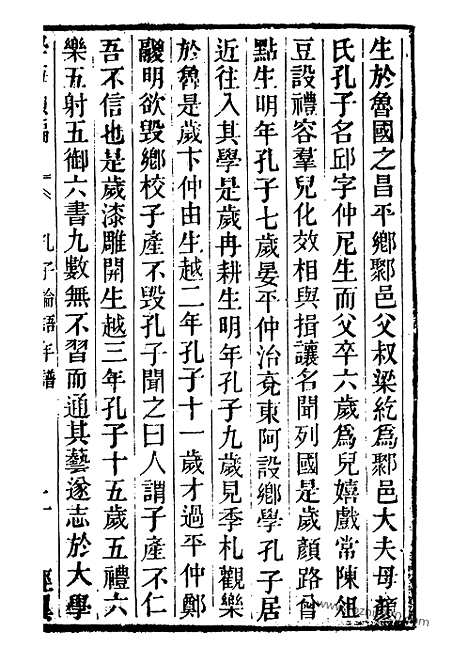 生於魯國之昌平鄉鄹邑父叔梁紇爲鄹邑大夫母顏
氏孔子名邱字仲尼生而父卒六歲爲兒嬉戲常陳俎
豆設禮容羣兒化效相與揖讓名聞列國是歲顏路曾
點生明年孔子七歲晏平仲治東阿設鄉學孔子居
近往入其學是歲冉耕生明年孔子九歲見季札觀樂
於魯是歲卞仲由生越二年孔子十一歲才過平仲鄭
鬷明欲毀鄉校子產不毀孔子聞之曰人謂子產不仁
吾不信也是歲漆雕開生越三年孔子十五歲五禮六
樂五射五御六書九數無不習而通其藝遂志於大學
孔子論語年譜